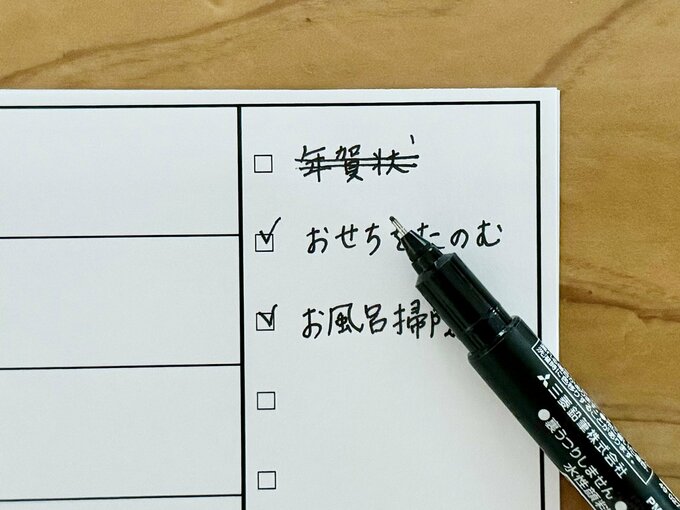 年賀状
おせちをたのむ
お風呂掃
三菱鉛筆株式会社
●裏うつりしません
水性顔料